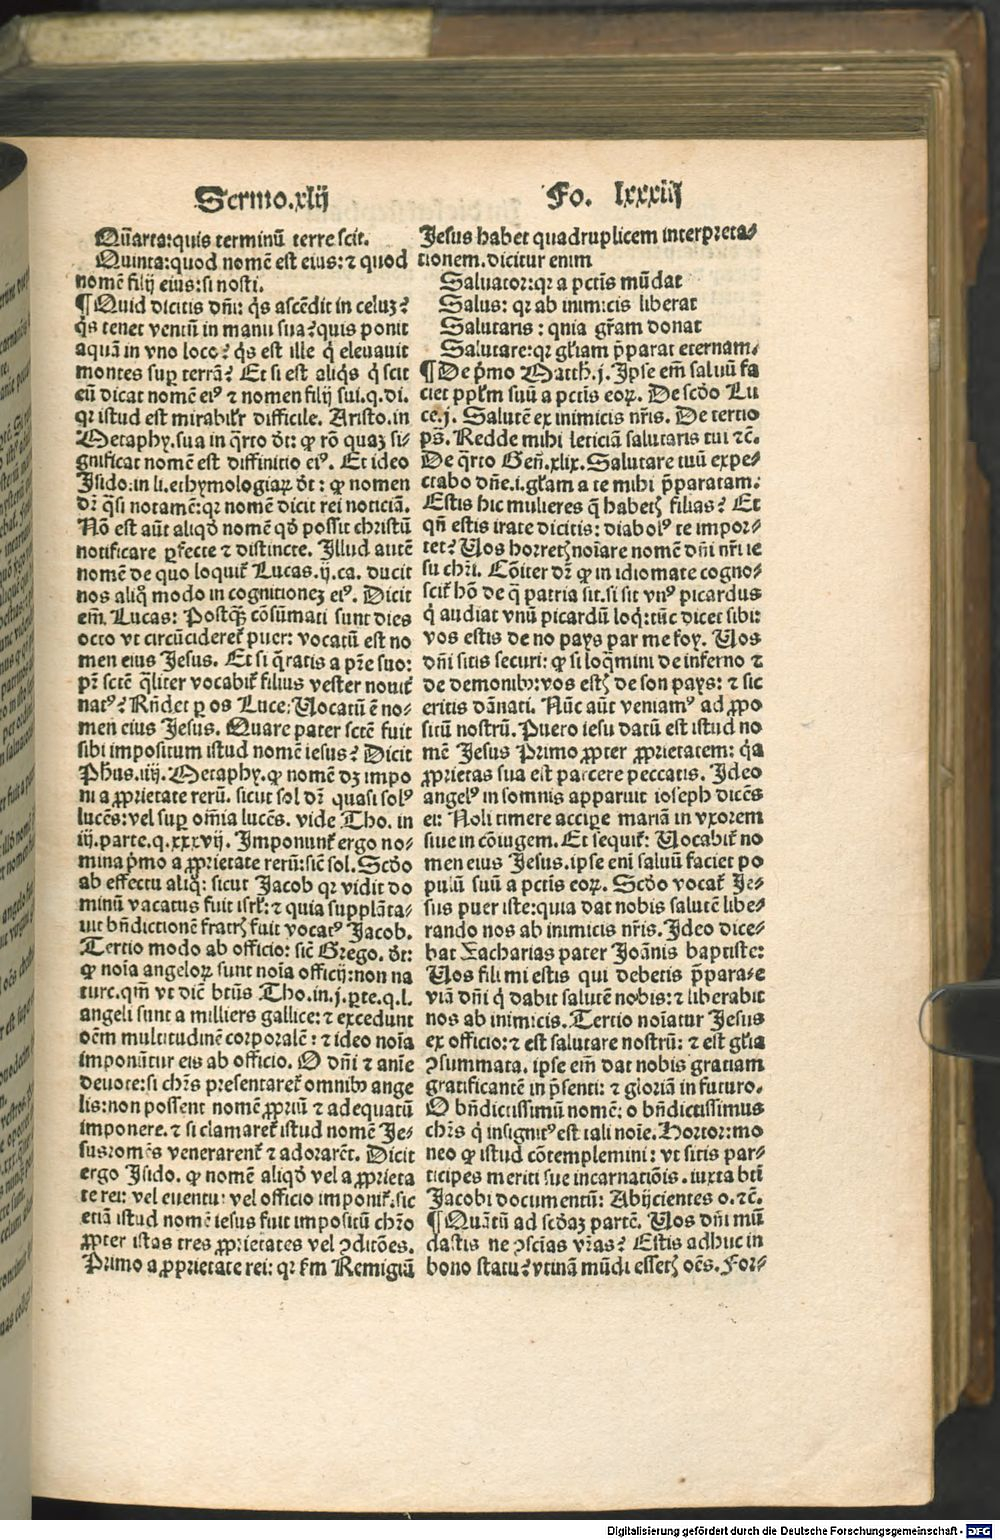 Sermo.xlij
Fo. lxxxiij
Qũarta:quis terminũ terre scit.
Quinta:quod nomẽ est eius:⁊ quod
nomẽ filij eius:si nosti.
¶Quid dicitis dñi: q̃s ascẽdit in celuꝫ?
q̃s tenet ventũ in manu sua?quis ponit
aquã in vno loco? q̃s est ille q̃ eleuauit
montes suꝑ terrã? Et si est aliq̃s q̃ scit
eũ dicat nomẽ eiꝰ ⁊ nomen filij sui.q.di.
qr istud est mirabilr̃ difficile. Aristo.in
Metaphy.sua in q̃rto dt: ꝙ rõ quaꝫ si⸗
gnificat nomẽ est diffinitio eiꝰ. Et ideo
Isido:in li.ethymologiaꝝ dt : ꝙ nomen
dr̃ q̃si notamẽ:qr nomẽ dicit rei noticiã.
Nõ est aũt aliqd̃ nomẽ qd̃ possit christũ
notificare ꝑfecte ⁊ distincte. Illud autẽ
nomẽ de quo loquit̃ Lucas.ij.ca. ducit
nos aliq̃ modo in cognitioneꝫ eiꝰ. Dicit
em̃. Lucas: Postq̃ꝫ cõsũmati sunt dies
octo vt circũcideret̃ puer: vocatũ est no
men eius Jesus. Et si q̃ratis a pr̃e suo:
pr̃ sctẽ q̃liter vocabit̃ filius vester nouit̃
natꝰ? Rñdet ꝑ os Luce: Uocatũ ẽ no⸗
men eius Jesus. Quare pater sctẽ fuit
sibi impositum istud nomẽ iesus? Dicit
Phus.iiij. Metaphy.ꝙ nomẽ dꝫ impo
ni a ꝓprietate rerũ. sicut sol dr̃ quasi solꝰ
lucẽs:vel suꝑ om̃ia lucẽs. vide Tho. in
iij.parte.q.xxxvij. Imponunt̃ ergo no⸗
mina p̃mo a ꝓprietate rerũ:sic̃ sol. Scdo
ab effectu aliq̃: sicut Jacob qr vidit do
minũ vacatus fuit isrl̃: ⁊ quia supplãta⸗
uit bñdictionẽ fratrꝭ fuit vocatꝰ Jacob.
Tertio modo ab officio: sic̃ Grego. dt:
ꝙ noĩa angeloꝝ sunt noĩa officij:non na
ture.qm̃ vt dic̃ btũs Tho.in.j.ꝑte.q.l.
angeli sunt a milliers gallice: ⁊ excedunt
oẽm multitudinẽ corporalẽ : ⁊ ideo noĩa
imponũtur eis ab officio. O dñi ⁊ anĩe
deuote:si chr̃s presentaret̃ omnibꝰ ange
lis:non possent nomẽ ꝓpriũ ⁊ adequatũ
imponere.⁊ si clamaret̃ istud nomẽ Je⸗
sus:omẽs venerarent̃ ⁊ adorarẽt. Dicit
ergo Isido. ꝙ nomẽ aliqd̃ vel a ꝓprieta
te rei: vel euentu: vel officio imponit̃.sic
etiã istud nomẽ iesus fuit impositũ chr̃o
ꝓpter istas tres ꝓprietates vel ↄditões.
Primo a ꝓprietate rei: qr km̃ Remigiũ
Jesus habet quadruplicem interpreta⸗
tionem.dicitur enim
Saluator:qr a pctĩs mũdat
Salus: qr ab inimicis liberat
Salutaris : quia gr̃am donat
Salutare:qr gl̃iam p̃parat eternam.
¶De p̃mo Matth̃.j. Ipse em̃ saluũ fa
ciet pplm̃ suũ a pctĩs eoꝝ. De scdo Lu
ce.j. Salutẽ ex inimicis nr̃is. De tertio
ps̃. Redde mihi leticiã salutaris tui ⁊c̃.
De q̃rto Geñ.xlix. Salutare tuũ expe⸗
ctabo dñe.i.gl̃iam a te mihi p̃paratam.
Estis hic mulieres q̃ habetꝭ filias? Et
qñ estis irate dicitis: diabolꝰ te impor⸗
tet? Uos horretꝭ noĩare nomẽ dñi nr̃i ie
su chr̃i. Cõiter dr̃ ꝙ in idiomate cogno⸗
scit̃ hõ de q̃ patria sit.si sit vnꝰ picardus
q̃ audiat vnũ picardũ loq̃:tũc dicet sibi:
vos estis de no pays par me foy. Uos
dñi sitis securi: ꝙ si loq̃mini de inferno ⁊
de demonibꝰ:vos estꝭ de son pays: ⁊ sic
eritis dãnati. Nũc aũt veniamꝰ ad ꝓpo
situ nostrũ. Puero iesu datũ est istud no
mẽ Jesus Primo ꝓpter ꝓprietatem: q̃a
ꝓprietas sua est parcere peccatis. Ideo
angelꝰ in somnis apparuit ioseph dicẽs
ei: Noli timere accipe mariã in vxorem
siue in cõiugem. Et sequit̃: Uocabit̃ no
men eius Jesus.ipse eni saluũ faciet po
pulũ suũ a pctĩs eoꝝ. Scdo vocat̃ Je⸗
sus puer iste:quia dat nobis salutẽ libe⸗
rando nos ab inimicis nr̃is. Ideo dice⸗
bat Zacharias pater Joãnis baptiste:
Uos fili mi estis qui debetis p̃parare
viã dñi q̃ dabit salutẽ nobis:⁊ liberabit
nos ab inimicis. Tertio noĩatur Jesus
ex officio: ⁊ est salutare nostrũ: ⁊ est gl̃ia
ↄsummata. ipse em̃ dat nobis gratiam
gratificantẽ in p̃senti: ⁊ gloriã in futuro.
O bñdictissimũ nomẽ: o bñdictissimus
chr̃s q̃ insignitꝰ est tali noĩe. Hortor:mo
neo ꝙ istud cõtemplemini : vt sitis par⸗
ticipes meriti sue incarnatiõis. iuxta bti
Jacobi documentũ: Abijcientes o.⁊c̃.
¶Quãtũ ad scdaꝫ partẽ. Uos dñi mũ
dastis ne ↄsciãs vr̃as? Estis adhuc in
bono statu?vtinã mũdi essetꝭ oẽs. For⸗
Digitalisierung gefördert durch die Deutsche Forschungsgemeinschaft - DFG